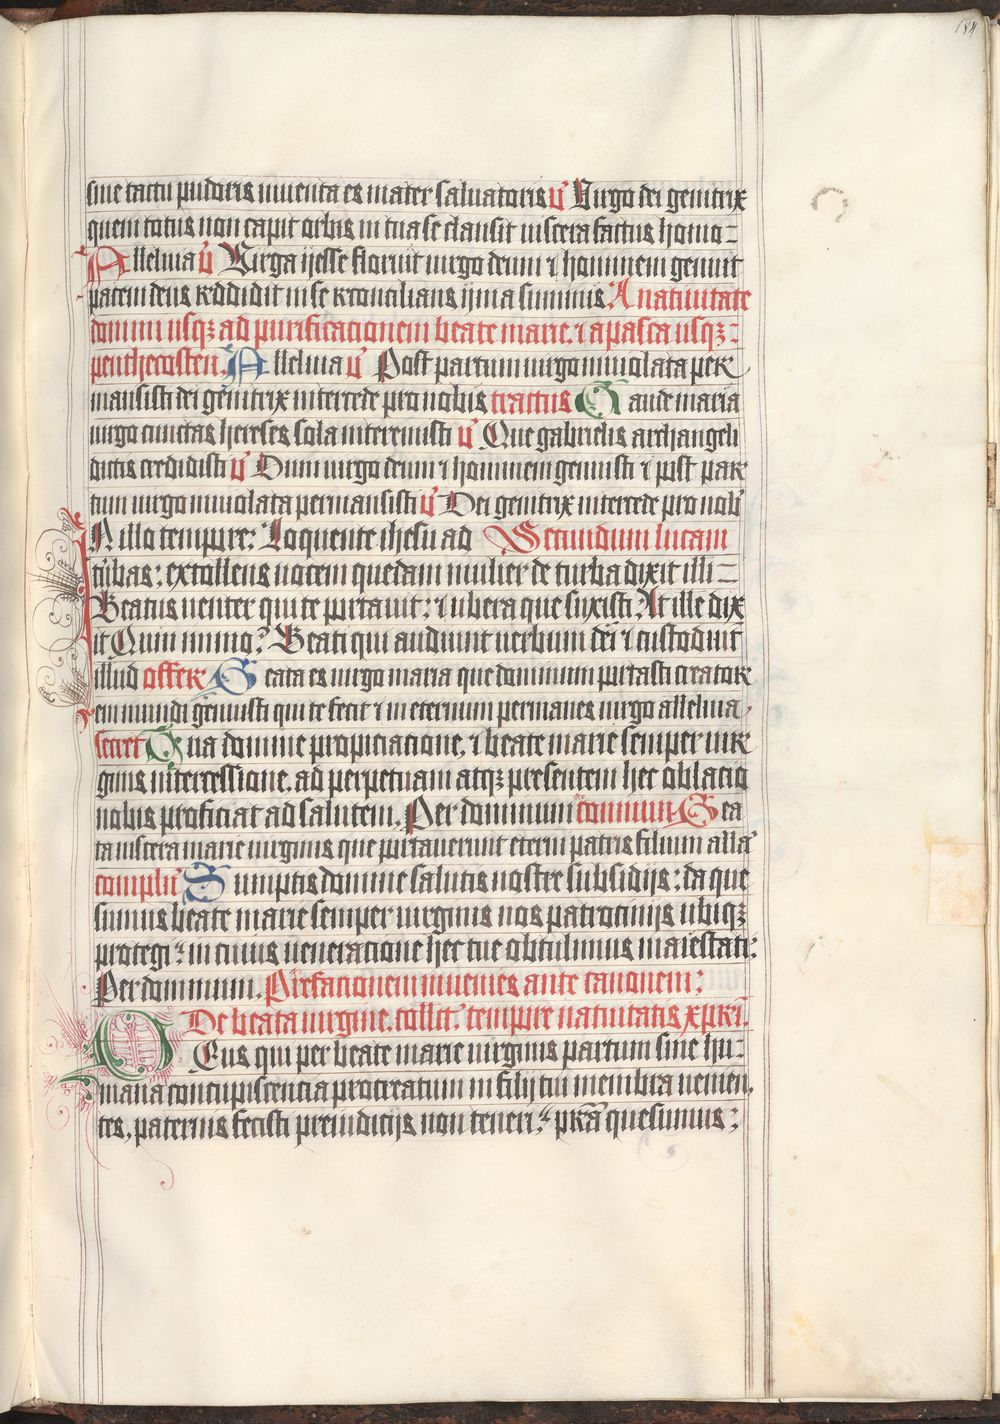 184
sine tactu pudoris inuenta es mater saluatoris ℣ Uirgo dei genitrix
quem totus non capit orbis in tua se clausit uiscera factus homo
Alleluia ℣ Uirga iesse floruit uirgo deum ⁊ hominem genuit
pacem deus reddidit in se reconcilians ima summis. A natiuitate
domini usqꝫ ad purificacionem beate marie. ⁊ a pasca usqꝫ
penthecosten. Alleluia ℣ Post partum uirgo inuiolata per
mansisti dei genitrix intercede pro nobis tractus Gaude maria
uirgo cunctas hereses sola interemisti ℣ Que gabrielis archangeli
dictis credidisti ℣ Dum uirgo deum ⁊ hominem genuisti ⁊ post par
tum uirgo inuiolata permansisti ℣ Dei genitrix intercede pro nob
In illo tempore: Loquente ihesu ad Secundum lucam
turbas: extollens uocem quedam mulier de turba dixit illi
Beatus uenter qui te portauit: ⁊ ubera que suxisti. At ille dix
it Quin immo? Beati qui audiunt uerbum dei ⁊ custodiunt
illud offer Beata es uirgo maria que dominum portasti creator
em mundi genuisti qui te fecit ⁊ in eternum permanes uirgo alleluia
secret Tua domine propiciacione, ⁊ beate marie semper uir
ginis intercessione. ad perpetuam atqꝫ presentem hec oblacio
nobis proficiat ad salutem. Per dominum commun Bea
ta uiscera marie uirginis que portauerunt eterni patris filium alla
complu Sumptis domine salutis nostre subsidijs: da que
sumus beate marie semper uirginis nos patrocinijs ubiqꝫ
protegi: in cuius ueneracione hec tue obtulimus maiestati:
Per dominum. Prefacionem inuenies ante canonem:
De beata uirgine. collct. tempore natiuitatis xpri.
Deus qui per beate marie uirginis partum sine hu
mana concupiscencia procreatum in filij tui membra uenien
tes, paternis fecisti preiudicijs non teneri: pra quesumus: